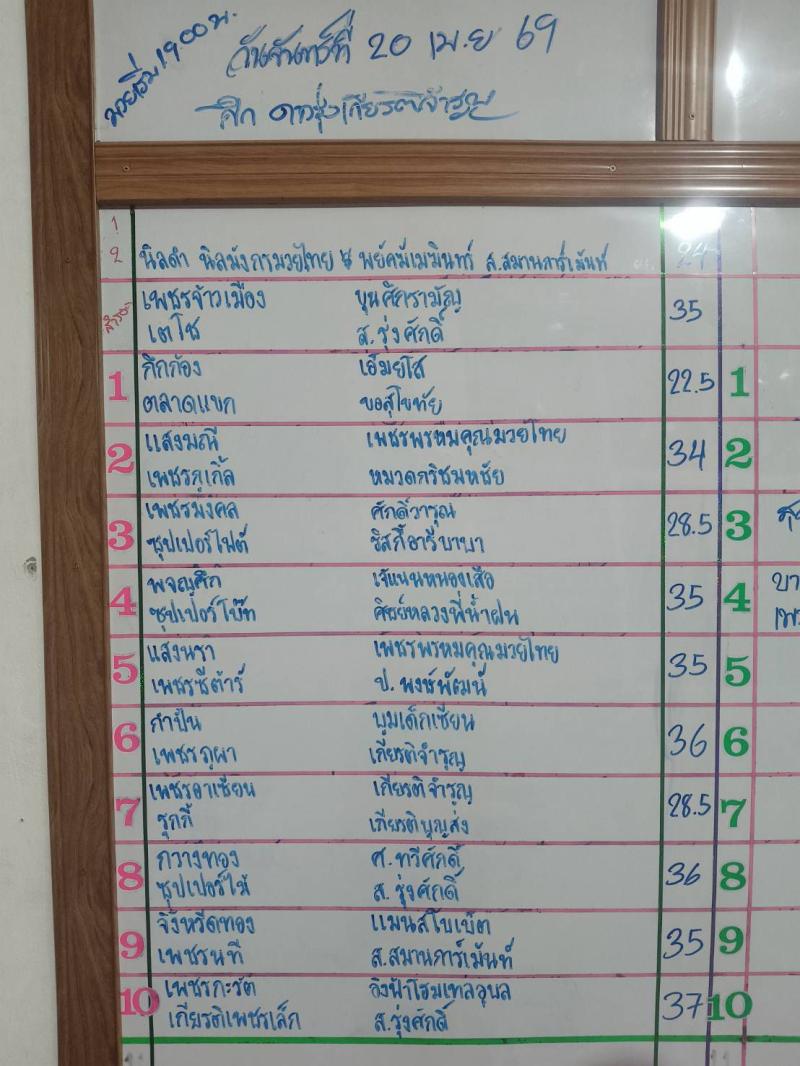 มวยเริ่ม 19.00 น.
วันจันทร์ที่ 20 เม.ย 69
ศึก ดาวรุ่งเกียรติจำรูญ
1
2 นิลดำ นิลมังกรมวยไทย พยัคฆ์เมฆินทร์ ส.สมานการ์เม้นท์ 24
สำรอง เพชรจ้าวเมือง ขุนศึกรามัญ 35
เตโช ส.รุ่งศักดิ์
1 กึกก้อง เอ็มยูโส 22.5 1
ตลาดแขก ขอสุโขทัย
2 แสงมณี เพชรพรหมคุณมวยไทย 34 2
เพชรภูเก็ต หมวดกริชมหชัย
3 เพชรมงคล ศักดิ์วารุณ 28.5 3
ซุปเปอร์ไฟต์ ริสกี้อารีบาบา
4 พจญศึก เจ๊แนนหนองเสือ 35 4 บา
ซุปเปอร์โบ๊ท ศิษย์หลวงพี่น้ำฝน เพ
5 แสงนรา เพชรพรหมคุณมวยไทย 35 5
เพชรซีต้าร์ ป.พงษ์พัฒน์
6 กำปั่น บูมเด็กเซียน 36 6
เพชรภูผา เกียรติจำรูญ
7 เพชรอาเซียน เกียรติจำรูญ 28.5 7
รุกกี้ เกียรติบุญส่ง
8 กวางทอง ศ.ทวีศักดิ์ 36 8
ซุปเปอร์ไม้ ส.รุ่งศักดิ์
9 จังหรีดทอง แมนสโบเบ็ต 35 9
เพชรนที ส.สมานการ์เม้นท์
10 เพชรกะรัต อิงฟ้าโฮมเทลอุบล 37 10
เกียรติเพชรเล็ก ส.รุ่งศักดิ์